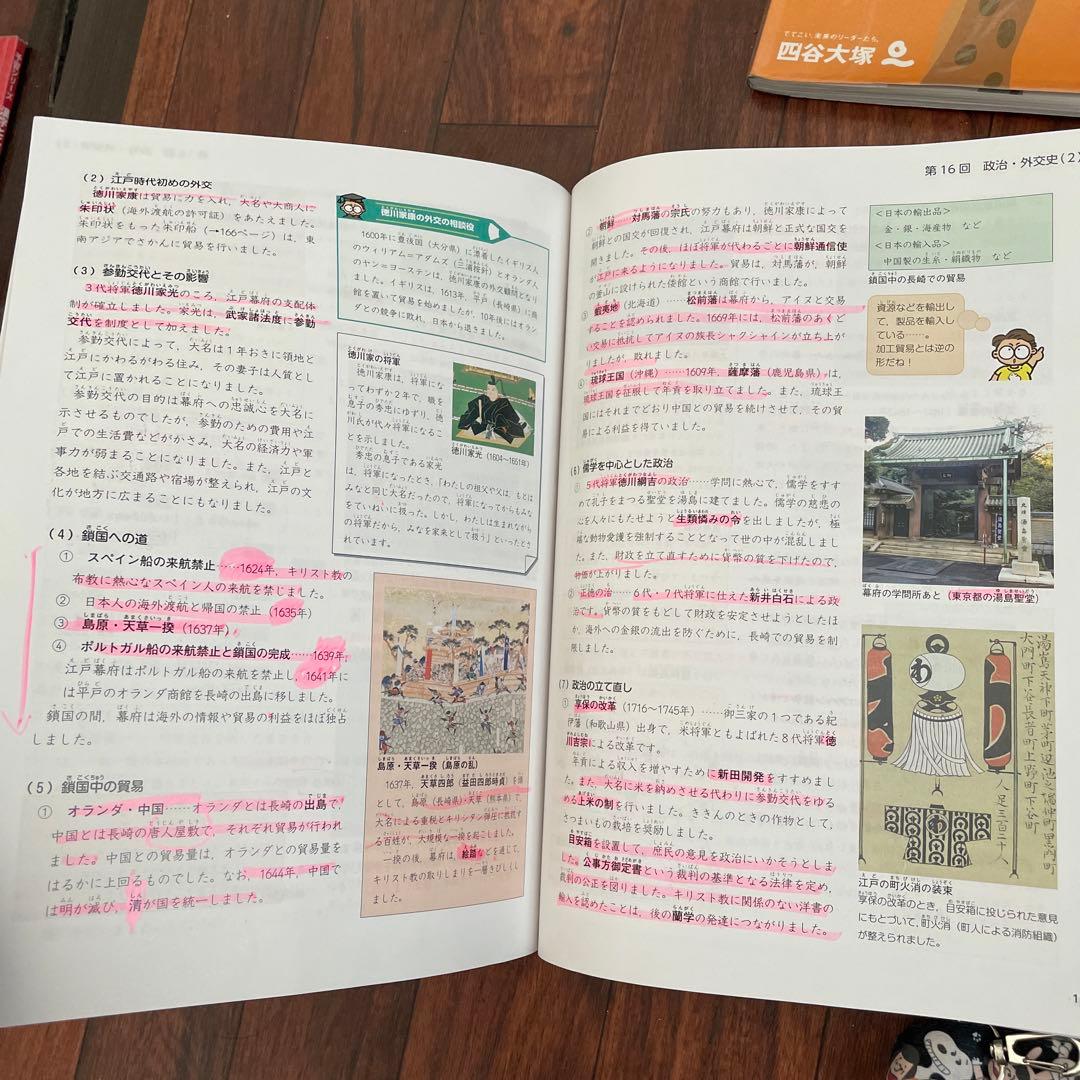 ででこい、未来のリーダーたち。
四谷大塚
(2)江戸時代初めの外交
徳川家康は貿易に力を入れ、大名や大商人に
朱印状(海外渡航の許可証)をあたえました。
朱印状をもった朱印船(→166ページ)は、東
南アジアでさかんに貿易を行いました。
(3)参勤交代とその影響
3代将軍徳川家光のころ、江戸幕府の支配体
制が確立しました。家光は、武家諸法度に参勤
交代を制度として加えました。
参勤交代によって、大名は1年おきに領地と
江戸にかわるがわる住み、その妻子は人質とし
て江戸に置かれることになりました。
参勤交代の目的は幕府への忠誠心を大名に
示させるものでしたが、参勤のための費用や江
戸での生活費などがかさみ、大名の経済力や軍
事力が弱まることになりました。また、江戸と
各地を結ぶ交通路や宿場が整えられ、江戸の文
化が地方に広まることにもなりました。
(4)鎖国への道
① スペイン船の来航禁止……1624年、キリスト教の
布教に熱心なスペイン人の来航を禁じました。
② 日本人の海外渡航と帰国の禁止(1635年)
③ 島原・天草一揆(1637年)
④ ポルトガル船の来航禁止と鎖国の完成……1639年、
江戸幕府はポルトガル船の来航を禁止し、1641年に
は平戸のオランダ商館を長崎の出島に移しました。
鎖国の間、幕府は海外の情報や貿易の利益をほぼ独占
しました。
(5)鎖国中の貿易
① オランダ・中国……オランダとは長崎の出島で、
中国とは長崎の唐人屋敷で、それぞれ貿易が行われ
ました。中国との貿易量は、オランダとの貿易量を
はるかに上回るものでした。なお、1644年、中国で
は明が滅び、清が国を統一しました。
徳川家康の外交の相談役
1600年に豊後国(大分県)に漂着したイギリス人
のウィリアム=アダムズ(三浦按針)とオランダ人
のヤン=ヨーステンは、徳川家康の外交顧問となり
ました。イギリスは、1613年、平戸(長崎県)に商
館を置いて貿易を始めましたが、10年後にはオラン
ダとの競争に敗れ、日本から退きました。
徳川家の将軍
徳川家康は、将軍になっ
てわずか2年で、職を
息子の秀忠にゆずり、徳
川氏が代々将軍になるこ
とを示しました。
秀忠の息子である家光
は、将軍になったとき、「わたしの祖父や父は、もとは
みなと同じ大名だったので、将軍になってからもみな
をていねいに扱った。しかし、わたしは生まれながら
の将軍だから、みなを家来として扱う」といったとき
れています。
徳川家光(1604〜1651年)
島原・天草一揆(島原の乱)
1637年、天草四郎(益田四郎時貞)を頭
として、島原(長崎県)・天草(熊本県)で、
大名による重税とキリシタン弾圧に抵抗す
る百姓が、大規模な一揆を起こしました。
一揆の後、幕府は、絵踏などを通じて、
キリスト教の取りしまりを一層きびしくし
ました。
第16回 政治・外交史(2)
② 朝鮮……対馬藩の宗氏の努力もあり、徳川家康によって
朝鮮との国交が回復され、江戸幕府は朝鮮と正式な国交を
開きました。その後、ほぼ将軍が代わるごとに朝鮮通信使
が江戸に来るようになりました。貿易は、対馬藩が、朝鮮
の釜山に設けられた倭館という商館で行いました。
③ 蝦夷地(北海道)……松前藩は幕府から、アイヌと交易
することを認められました。1669年には、松前藩のあくど
い交易に抵抗してアイヌの族長シャクシャインが立ち上が
りましたが、敗れました。
④ 琉球王国(沖縄)……1609年、薩摩藩(鹿児島県)は、
琉球王国を征服して年貢を取り立てました。また、琉球王
国にはそれまでどおり中国との貿易を続けさせて、その貿
易による利益を得ていました。
(6)儒学を中心とした政治
① 5代将軍徳川綱吉の政治……学問に熱心で、儒学をすす
めて孔子をまつる聖堂を湯島に建てました。儒学の慈悲の
心を人々にもたせようと生類憐みの令を出しましたが、極
端な動物愛護を強制することとなって世の中が混乱しまし
た。また、財政を立て直すために貨幣の質を下げたので、
物価が上がりました。
② 正徳の治……6代・7代将軍に仕えた新井白石による政
治です。貨幣の質をもどして財政を安定させようとしたほ
か、海外への金銀の流出を防ぐために、長崎での貿易を制
限しました。
(7)政治の立て直し
① 享保の改革(1716〜1745年)……御三家の1つである紀
伊藩(和歌山県)出身で、米将軍ともよばれた8代将軍徳
川吉宗による改革です。
年貢による収入を増やすために新田開発をすすめまし
た。また、大名に米を納めさせる代わりに参勤交代をゆる
める上米の制を行いました。ききんのときの作物として、
さつまいもの栽培を奨励しました。
目安箱を設置して、庶民の意見を政治にいかそうとしま
した。公事方御定書という裁判の基準となる法律を定め、
裁判の公正を図りました。キリスト教に関係のない洋書の
輸入を認めたことは、後の蘭学の発達につながりました。
<日本の輸出品>
金・銀・海産物 など
<日本の輸入品>
中国製の生糸・絹織物 など
鎖国中の長崎での貿易
資源などを輸出し
て、製品を輸入し
ている……。
加工貿易とは逆の
形だね!
幕府の学問所あと(東京都の湯島聖堂)
わ
人足三百二十人
江戸の町火消の装束
享保の改革のとき、目安箱に投じられた意見
にもとづいて、町火消(町人による消防組織)
が整えられました。